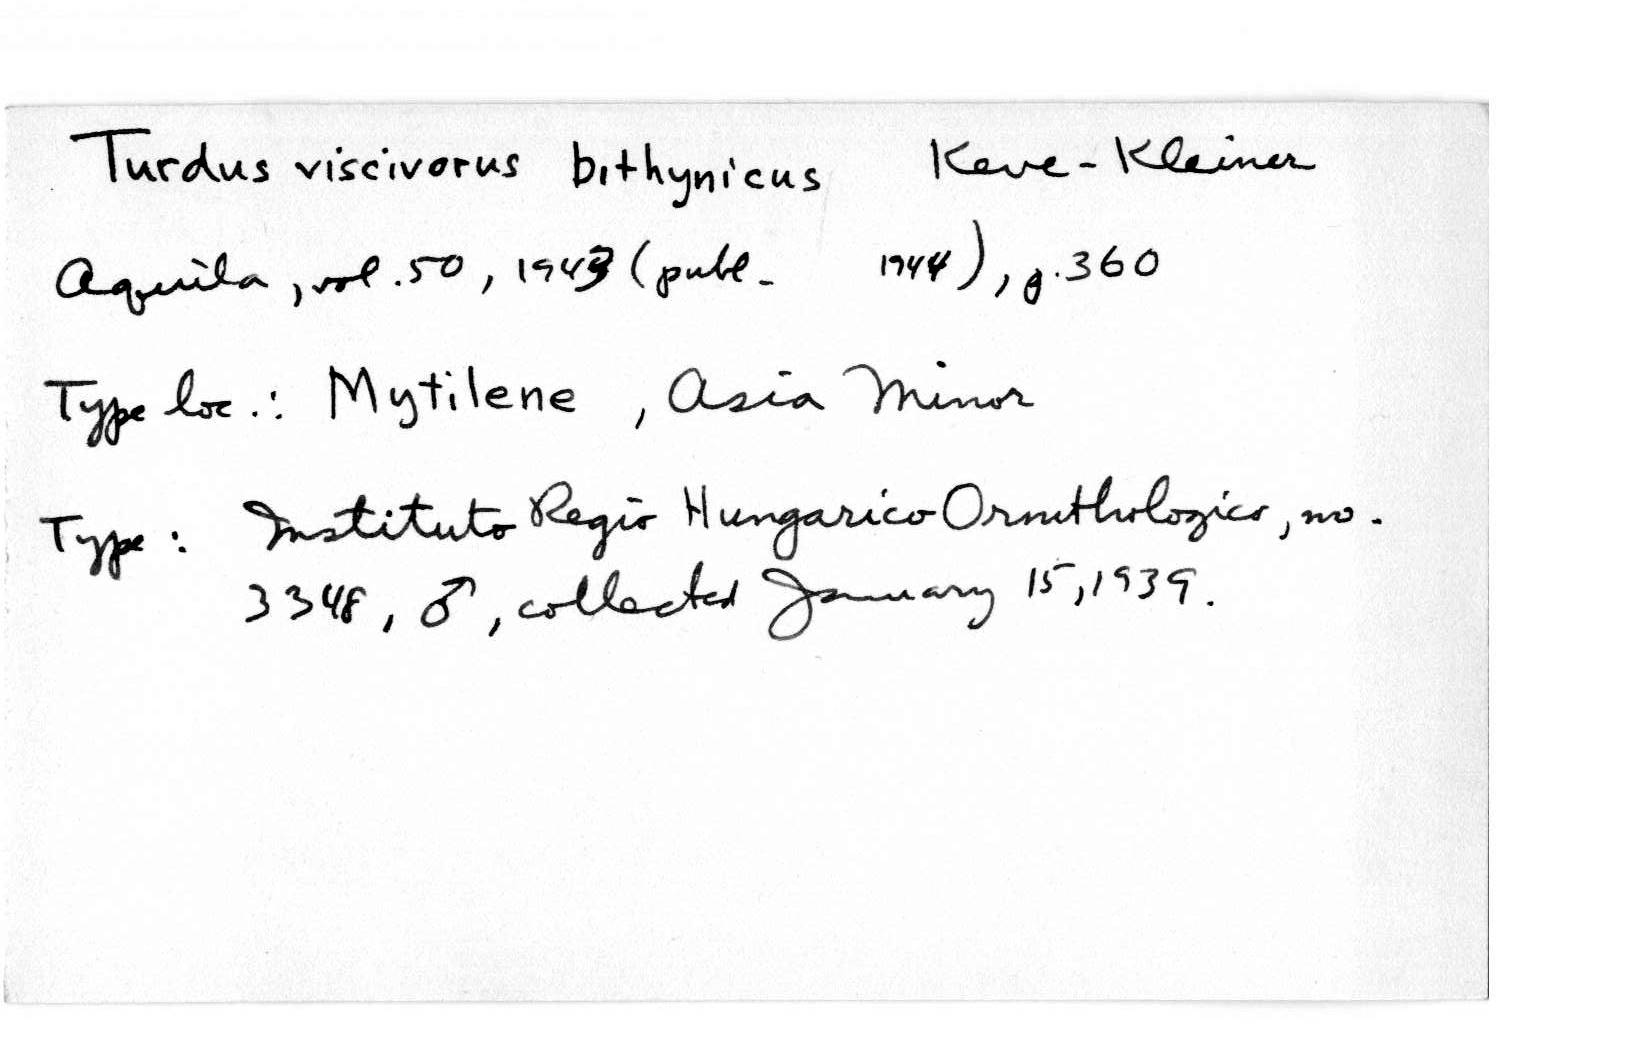 Turdus viscivorus bithynicus Keve-Kleiner
Aquila, vol. 50, 1943 (publ. 1944), p. 360
Type loc.: Mytilene, Asia Minor
Type: Instituto Regio Hungarico Ornithologico, no.
3348, ♂, collected January 15, 1939.